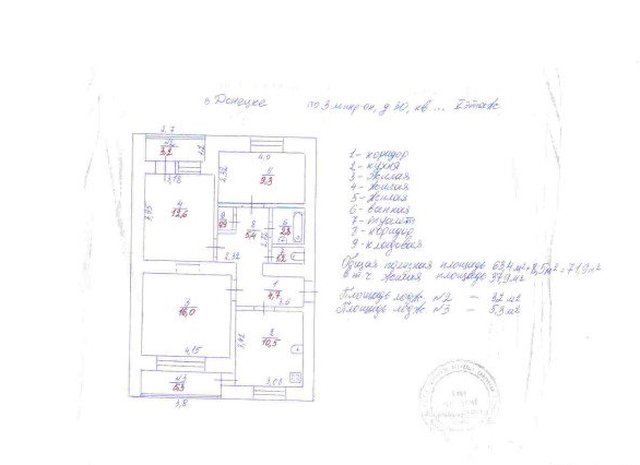 в Донецке по 3 микр-он, д 30, кв ... этаж
1 - коридор
2 - кухня
3 - жилая
4 - жилая
5 - жилая
6 - ванная
7 - туалет
8 - коридор
9 - кладовая
Общая полезная площадь 63,4 м² + 8,5 м² = 71,9 м²
в т.ч. жилая площадь 37,9 м²
Площадь лодж. №2 - 3,2 м²
Площадь лодж. №3 - 5,3 м²
3,2
4,0
5
9,3
3,18
4
12,6
8
5,4
2,32
1
4,7
3,6
3
16,0
2
10,5
4,15
3,03
5,3
3,8